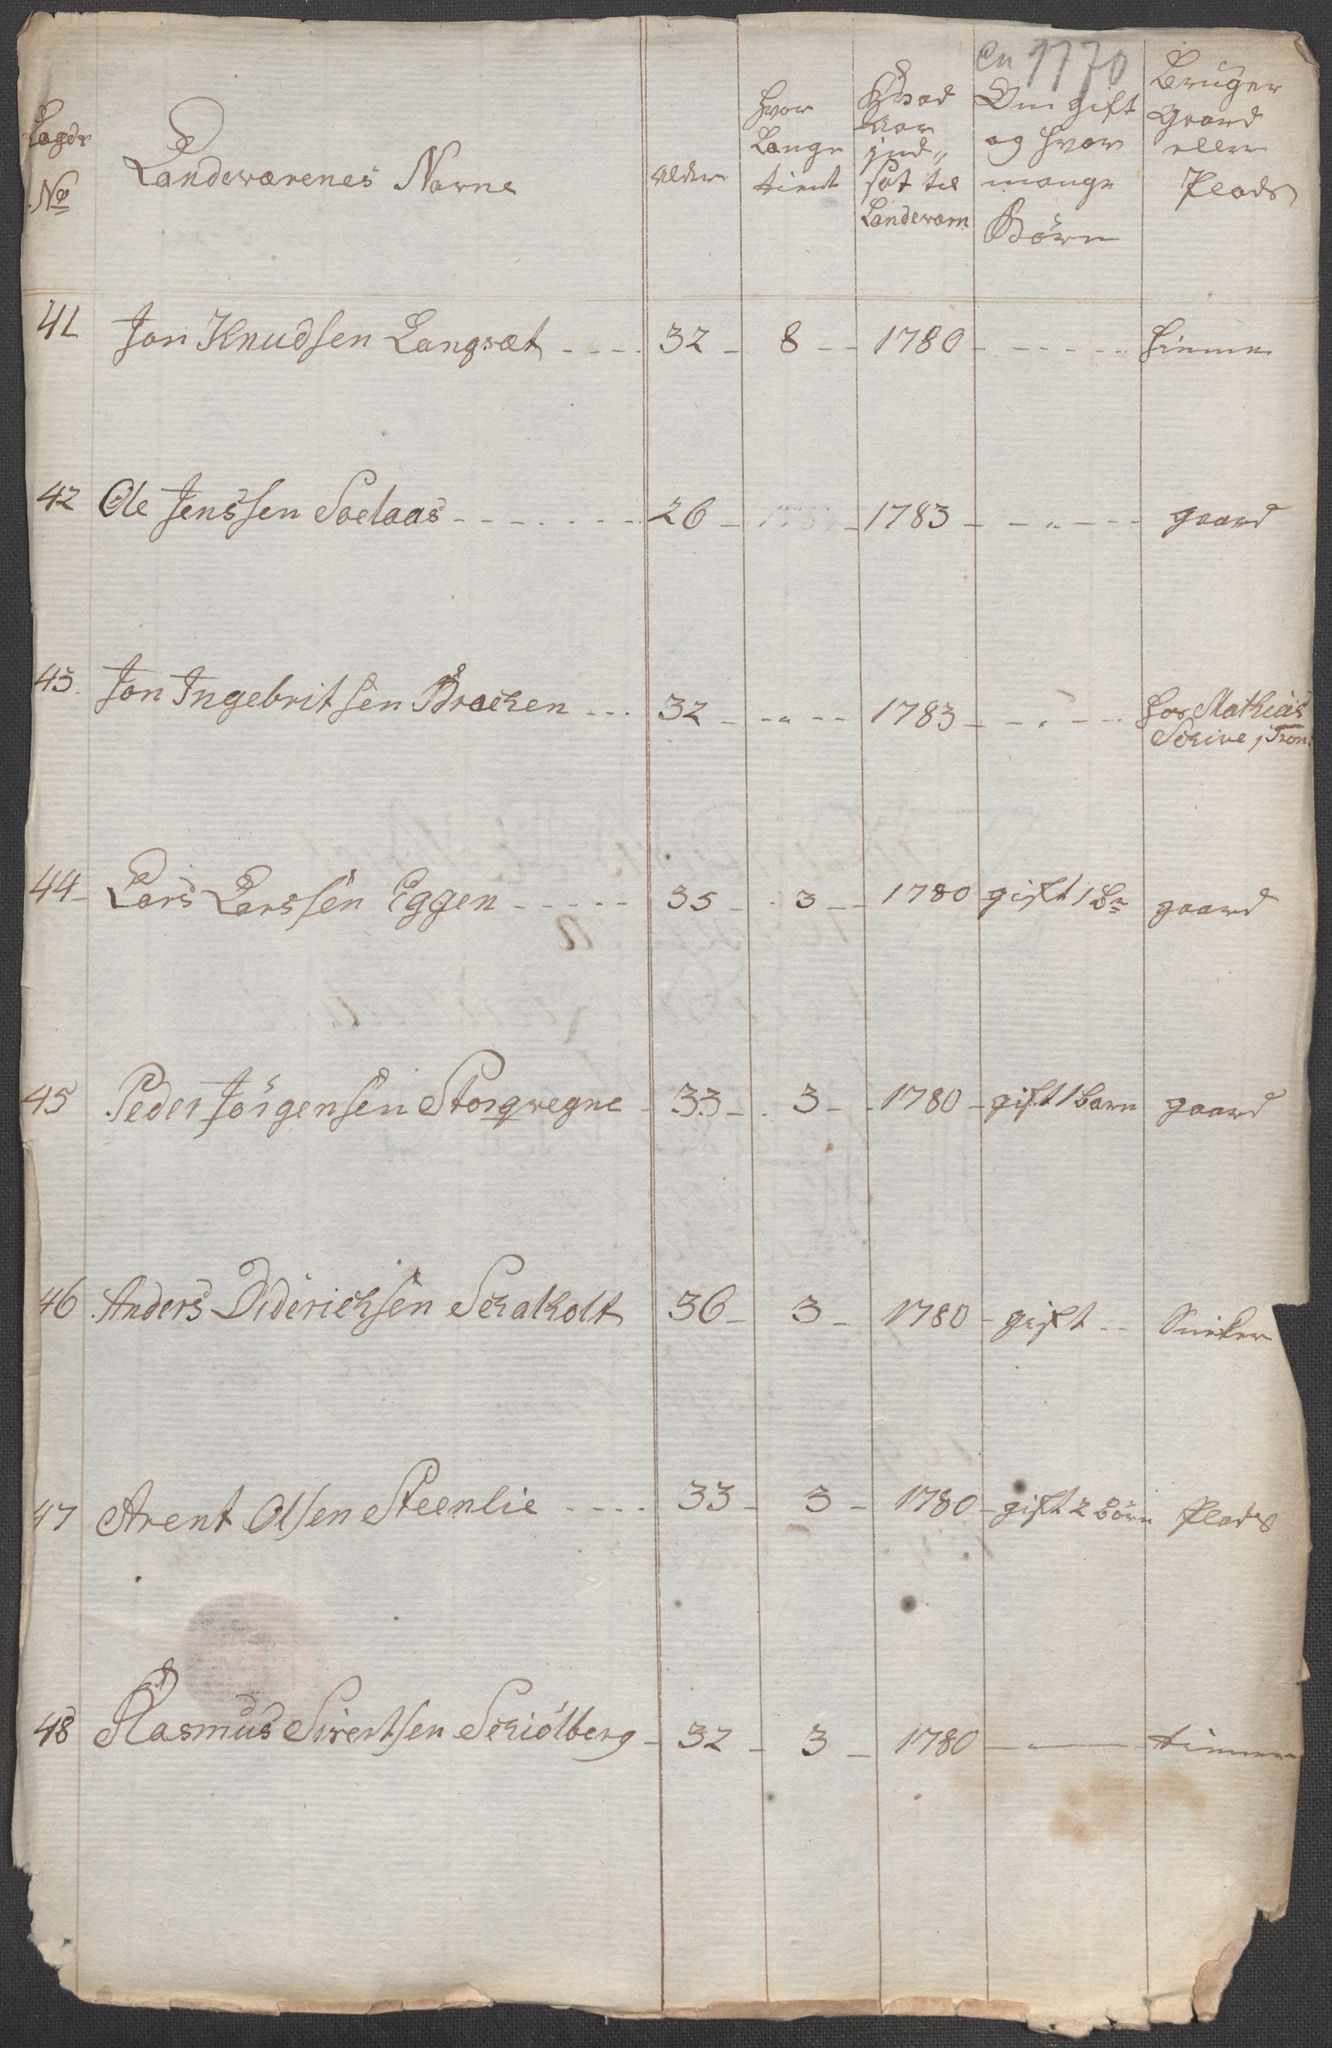 ca 1770
Lægds No | Landeværenes Navne | Alder | hvor Længe tient | Hvad Aar ind„ sat til Landeværn | Om gift og hvor mange Börn | Bruger Gaard eller Plads
41 Jon Knudsen Langsæt - - - - 32 - 8 - - 1780 - - - - - -
42 Ole Jenssen Soelaas - - - - - - - 26 - 1783 - 1783 - - - „ - - - gaard
43. Jon Ingebritsen Brechen - - - 32 - - „ - - 1783 - - - „ - - - hos Mathias
Schive i Tron:
44 Lars Larssen Eggen - - - - - 35 - 3 - - 1780 gift 1 Bn gaard
45 Peder Jörgensen Storqvegne - 33 - 3 - - 1780 - gift 1 barn gaard
46 Anders Diderichsen Schalholt 36 - 3 - 1780 - gift - - Snicker
47 Arent Olsen Steenlie - - - - 33 - 3 - 1780 - gift 2 börn Plads
48 Rasmus Sivertsen Schiölberg - 32 - 3 - 1780 - „ - tienner